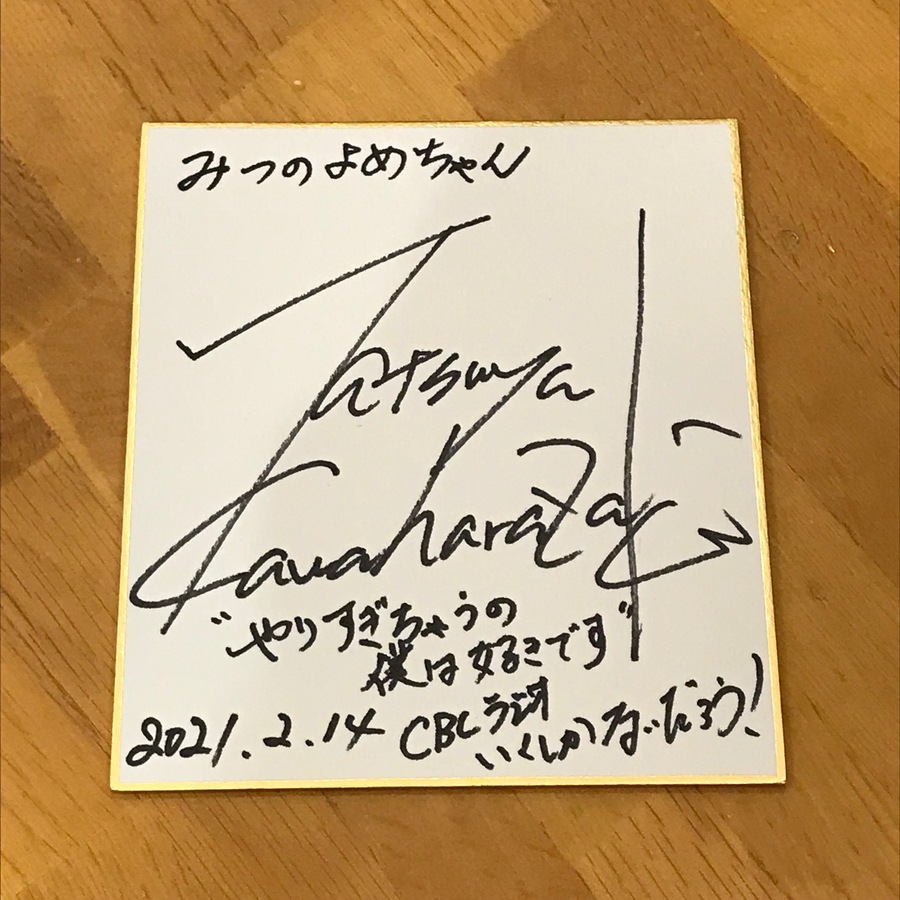 みつのよめちゃん
Tatsuya
Kawaharazaki
"やりすぎちゃうの
僕は好きです"
2021.2.14 CBCラジオ
いくしかないだろう!